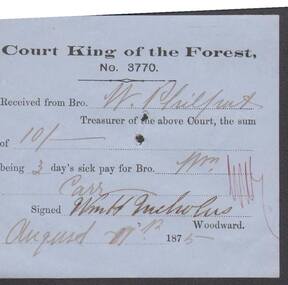 Court King of the Forest,
No. 3770.
Received from Bro. W. Philput
Treasurer of the above Court, the sum
of 10/-
being 3 day's sick pay for Bro. Wm
Carr
Signed Nicholus
Woodward.
August 1875